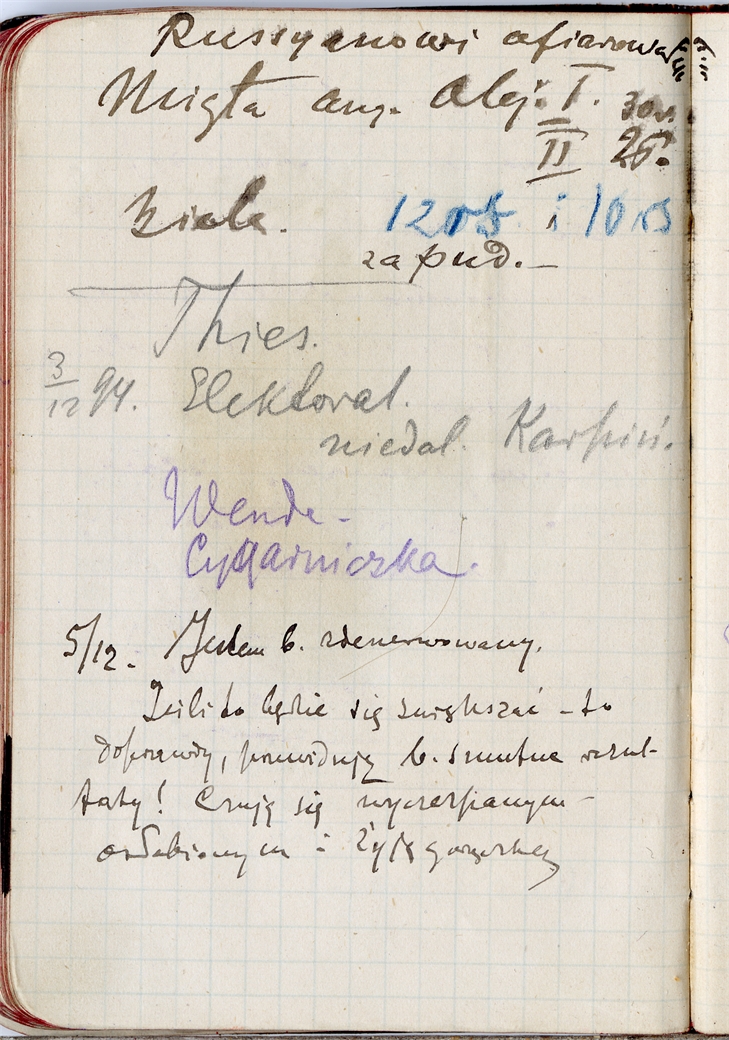 Russyanowi ofiarować
Mięta ang. Olej: I. 30rs.
II 25.
Ziele. 120rs. i 10 rs
za pud. –
Thies.
3/12 94. Elektoral.
niedal. Karpiń.
Wende –
Cygarniczka.
5/12. Jestem b. zdenerwowany.
Jeśli to będzie się zwiększać – to
doprawdy, przewiduję b. smutne rezul-
taty! Czuję się wyczerpanym –
osłabionym i żyję gorączką